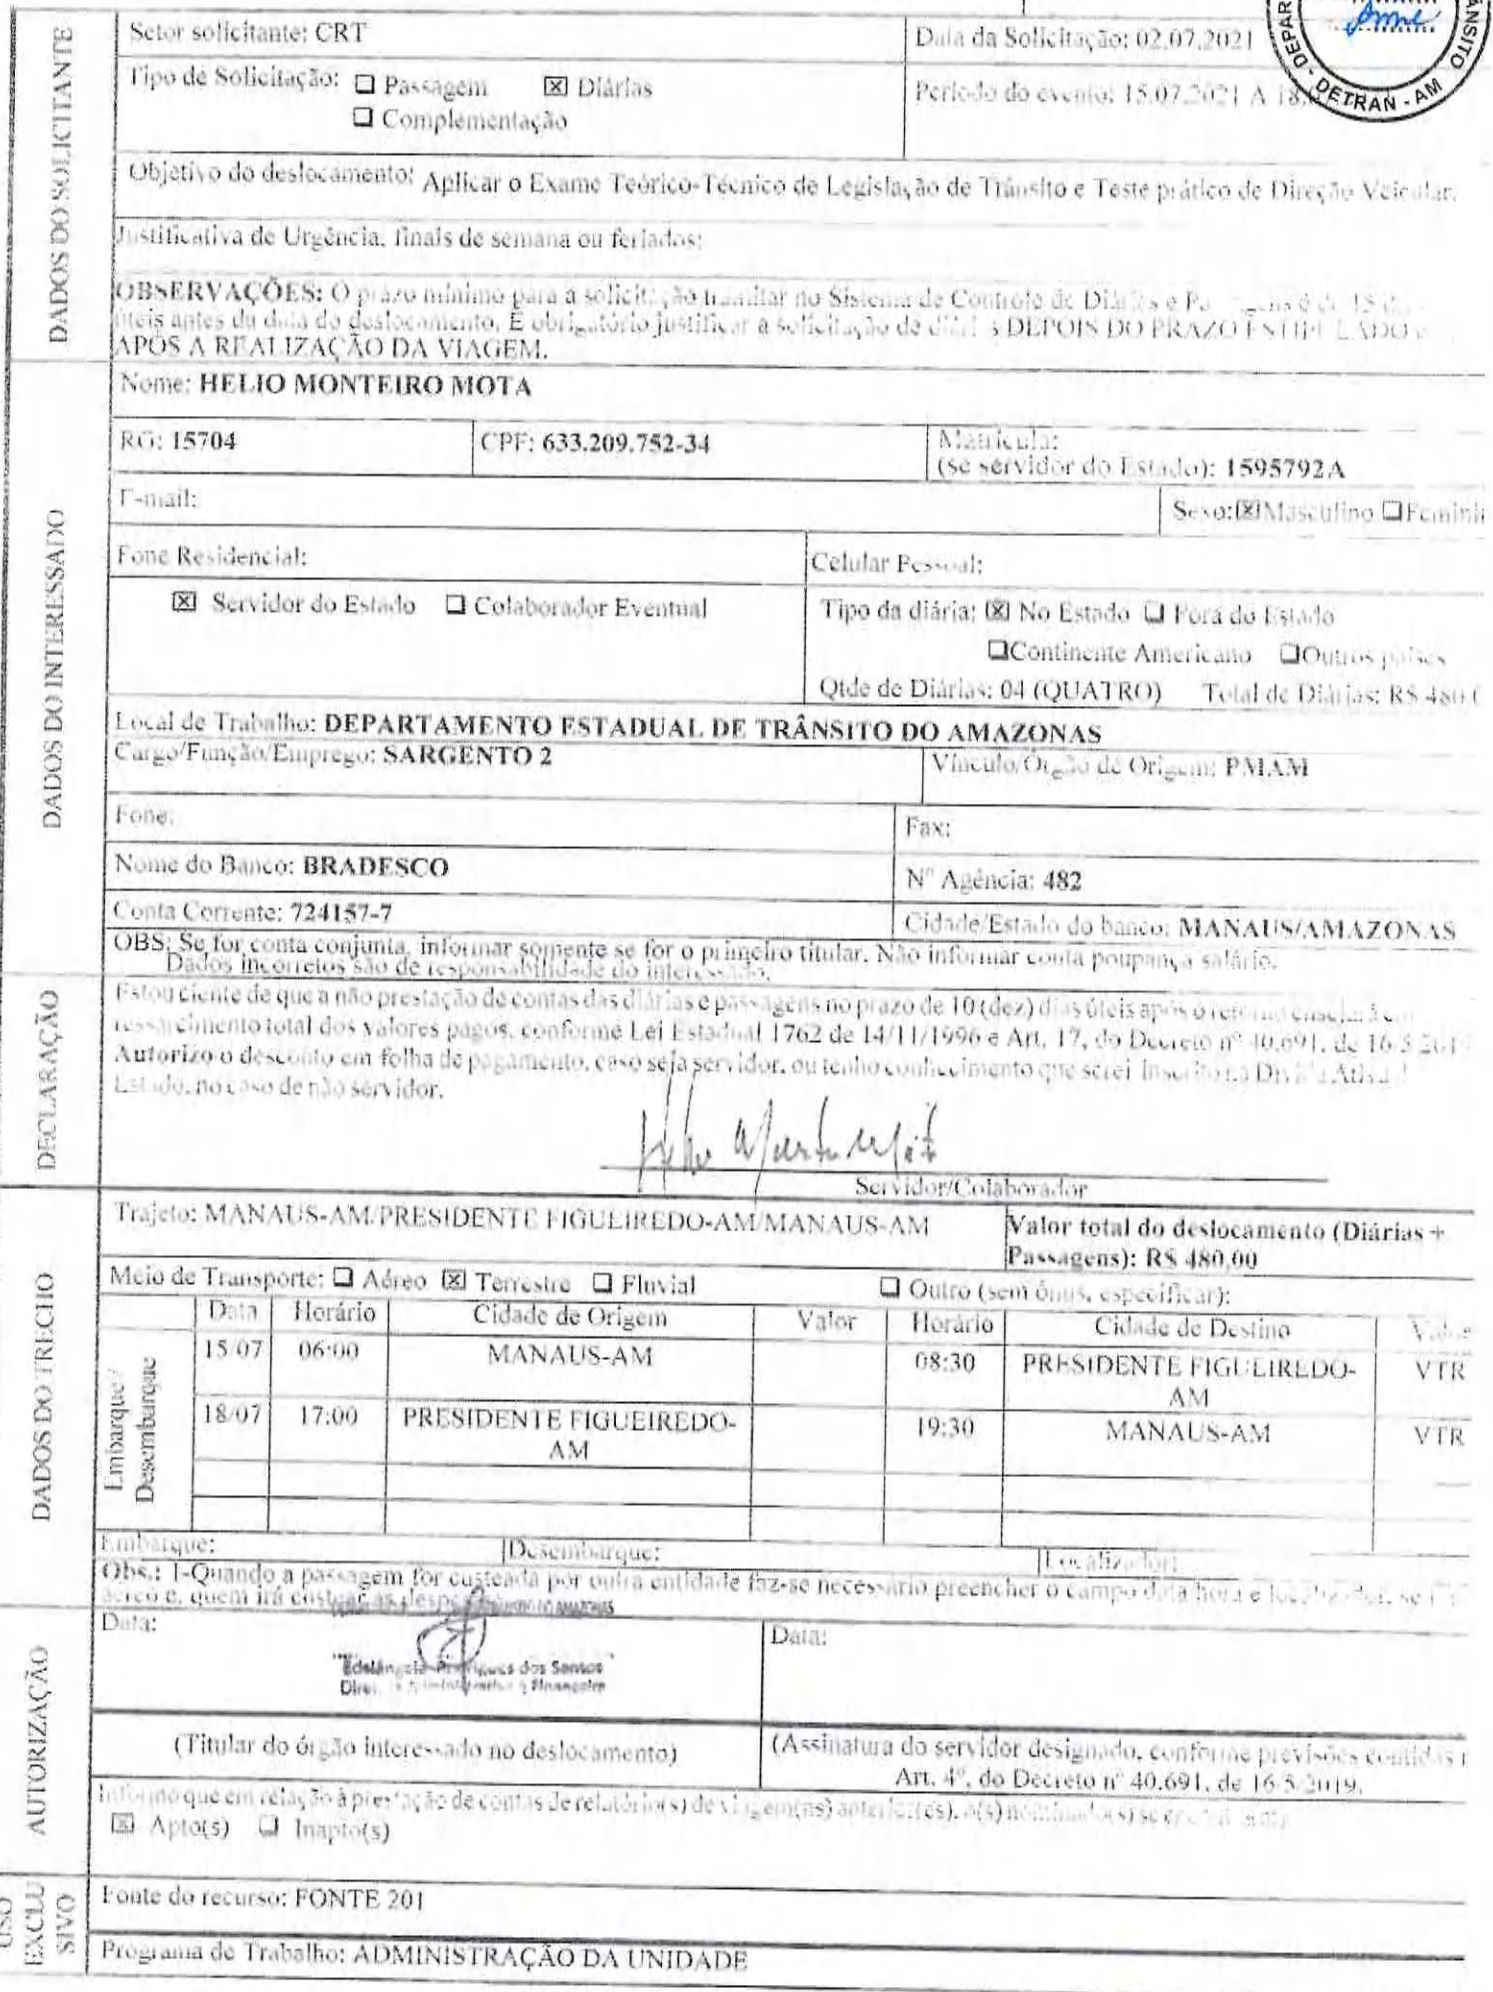 DEPAR
ÂNSITO
DETRAN - AM
DADOS DO SOLICITANTE
Setor solicitante: CRT
Data da Solicitação: 02.07.2021
Tipo de Solicitação: ☐ Passagem ☒ Diárias
☐ Complementação
Período do evento: 15.07.2021 A 18.
Objetivo do deslocamento: Aplicar o Exame Teórico-Técnico de Legislação de Trânsito e Teste prático de Direção Veicular.
Justificativa de Urgência, finais de semana ou feriados:
OBSERVAÇÕES: O prazo mínimo para a solicitação tramitar no Sistema de Controle de Diárias e Passagens é de 15 dias
úteis antes da data do deslocamento. É obrigatório justificar a solicitação de diárias DEPOIS DO PRAZO ESTIPULADO
APÓS A REALIZAÇÃO DA VIAGEM.
DADOS DO INTERESSADO
Nome: HELIO MONTEIRO MOTA
RG: 15704
CPF: 633.209.752-34
Matrícula:
(se servidor do Estado): 1595792A
E-mail:
Sexo: ☒ Masculino ☐ Feminin
Fone Residencial:
Celular Pessoal:
☒ Servidor do Estado ☐ Colaborador Eventual
Tipo da diária: ☒ No Estado ☐ Fora do Estado
☐ Continente Americano ☐ Outros países
Qtde de Diárias: 04 (QUATRO) Total de Diárias: R$ 480,0
Local de Trabalho: DEPARTAMENTO ESTADUAL DE TRÂNSITO DO AMAZONAS
Cargo/Função/Emprego: SARGENTO 2
Vínculo/Órgão de Origem: PMAM
Fone:
Fax:
Nome do Banco: BRADESCO
Nº Agência: 482
Conta Corrente: 724157-7
Cidade/Estado do banco: MANAUS/AMAZONAS
OBS: Se for conta conjunta, informar somente se for o primeiro titular. Não informar conta poupança salário.
Dados incorretos são de responsabilidade do interessado.
DECLARAÇÃO
Estou ciente de que a não prestação de contas das diárias e passagens no prazo de 10 (dez) dias úteis após o retorno ensejará
ressarcimento total dos valores pagos, conforme Lei Estadual 1762 de 14/11/1996 e Art. 17, do Decreto nº 40.691, de 16.5.2019
Autorizo o desconto em folha de pagamento, caso seja servidor, ou tenho conhecimento que serei inscrito na Dívida Ativa
Estado, no caso de não servidor.
Servidor/Colaborador
DADOS DO TRECHO
Trajeto: MANAUS-AM/PRESIDENTE FIGUEIREDO-AM/MANAUS-AM
Valor total do deslocamento (Diárias +
Passagens): R$ 480,00
Meio de Transporte: ☐ Aéreo ☒ Terrestre ☐ Fluvial ☐ Outro (sem ônus, especificar):
Embarque /
Desembarque
Data Horário Cidade de Origem Valor Horário Cidade de Destino Valor
15/07 06:00 MANAUS-AM 08:30 PRESIDENTE FIGUEIREDO-
AM VTR
18/07 17:00 PRESIDENTE FIGUEIREDO-
AM 19:30 MANAUS-AM VTR
Embarque: Desembarque: Localizador:
Obs.: 1-Quando a passagem for custeada por outra entidade faz-se necessário preencher o campo data hora e localizador, se
aéreo e, quem irá custear as despesas
AUTORIZAÇÃO
Data:
dos Santos
Data:
(Titular do órgão interessado no deslocamento)
(Assinatura do servidor designado, conforme previsões contidas
Art. 4º, do Decreto nº 40.691, de 16.5.2019.
Informo que em relação à prestação de contas de relatório(s) de viagem(ns) anterior(es), o(s) nominado(s) se
☒ Apto(s) ☐ Inapto(s)
USO
EXCLU
SIVO
Fonte do recurso: FONTE 201
Programa de Trabalho: ADMINISTRAÇÃO DA UNIDADE